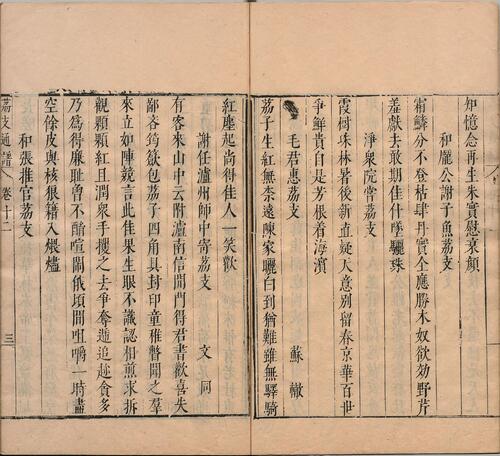 知憶念再生朱實慰衰顏
和龐公謝子魚荔支
霜鱗分不登枯肆丹實全應勝木奴欲効野芹
羞獻去敢期佳什墜驪珠
淨衆院嘗荔支
霞樹珠林暑後新直疑天意別留春京華百世
爭鮮貴自是芳根着海濱
毛君惠荔支 蘇轍
荔子生紅無柰遠陳家曬白到猶難雖無驛騎
紅塵起尚得佳人一笑歡
謝任瀘州師中寄荔支 文同
有客來山中云附瀘南信開門得君書歡喜失
鄙吝筠籢包荔子四角具封印童稚瞥聞之羣
來立如陣競言此佳果生眼不識認相煎求拆
觀顆顆紅且潤衆手攫之去爭奪遞追趁貪多
乃爲得廉耻曾不論喧鬧俄頃間咀嚼一時盡
空餘皮與核狼籍入煨燼
和張推官荔支
荔支通譜 卷十二 三